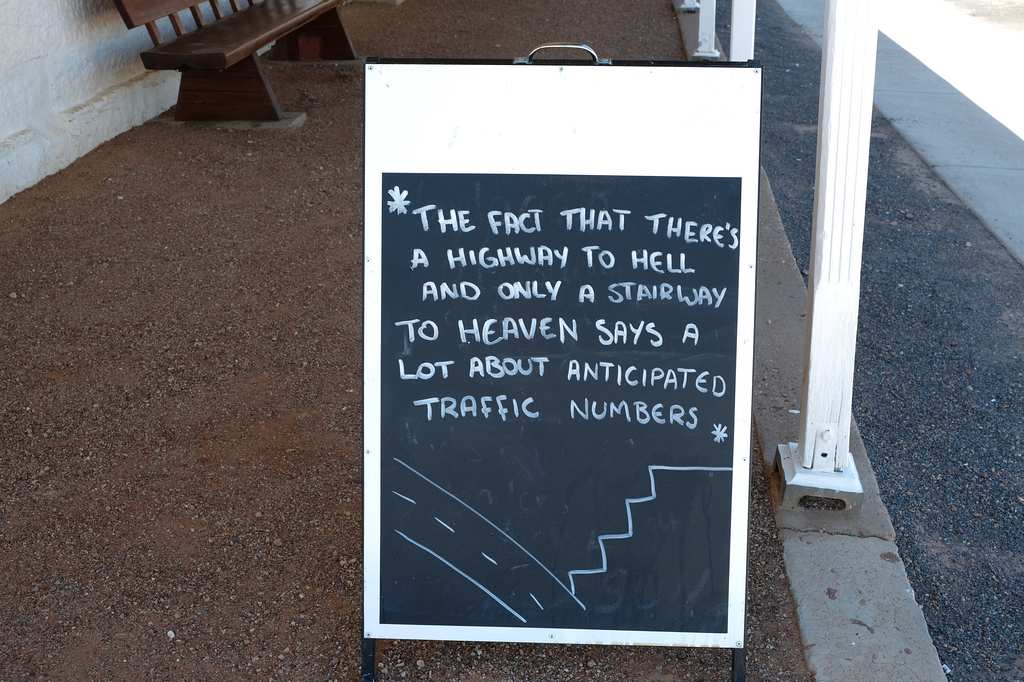 *THE FACT THAT THERE'S
A HIGHWAY TO HELL
AND ONLY A STAIRWAY
TO HEAVEN SAYS A
LOT ABOUT ANTICIPATED
TRAFFIC NUMBERS*